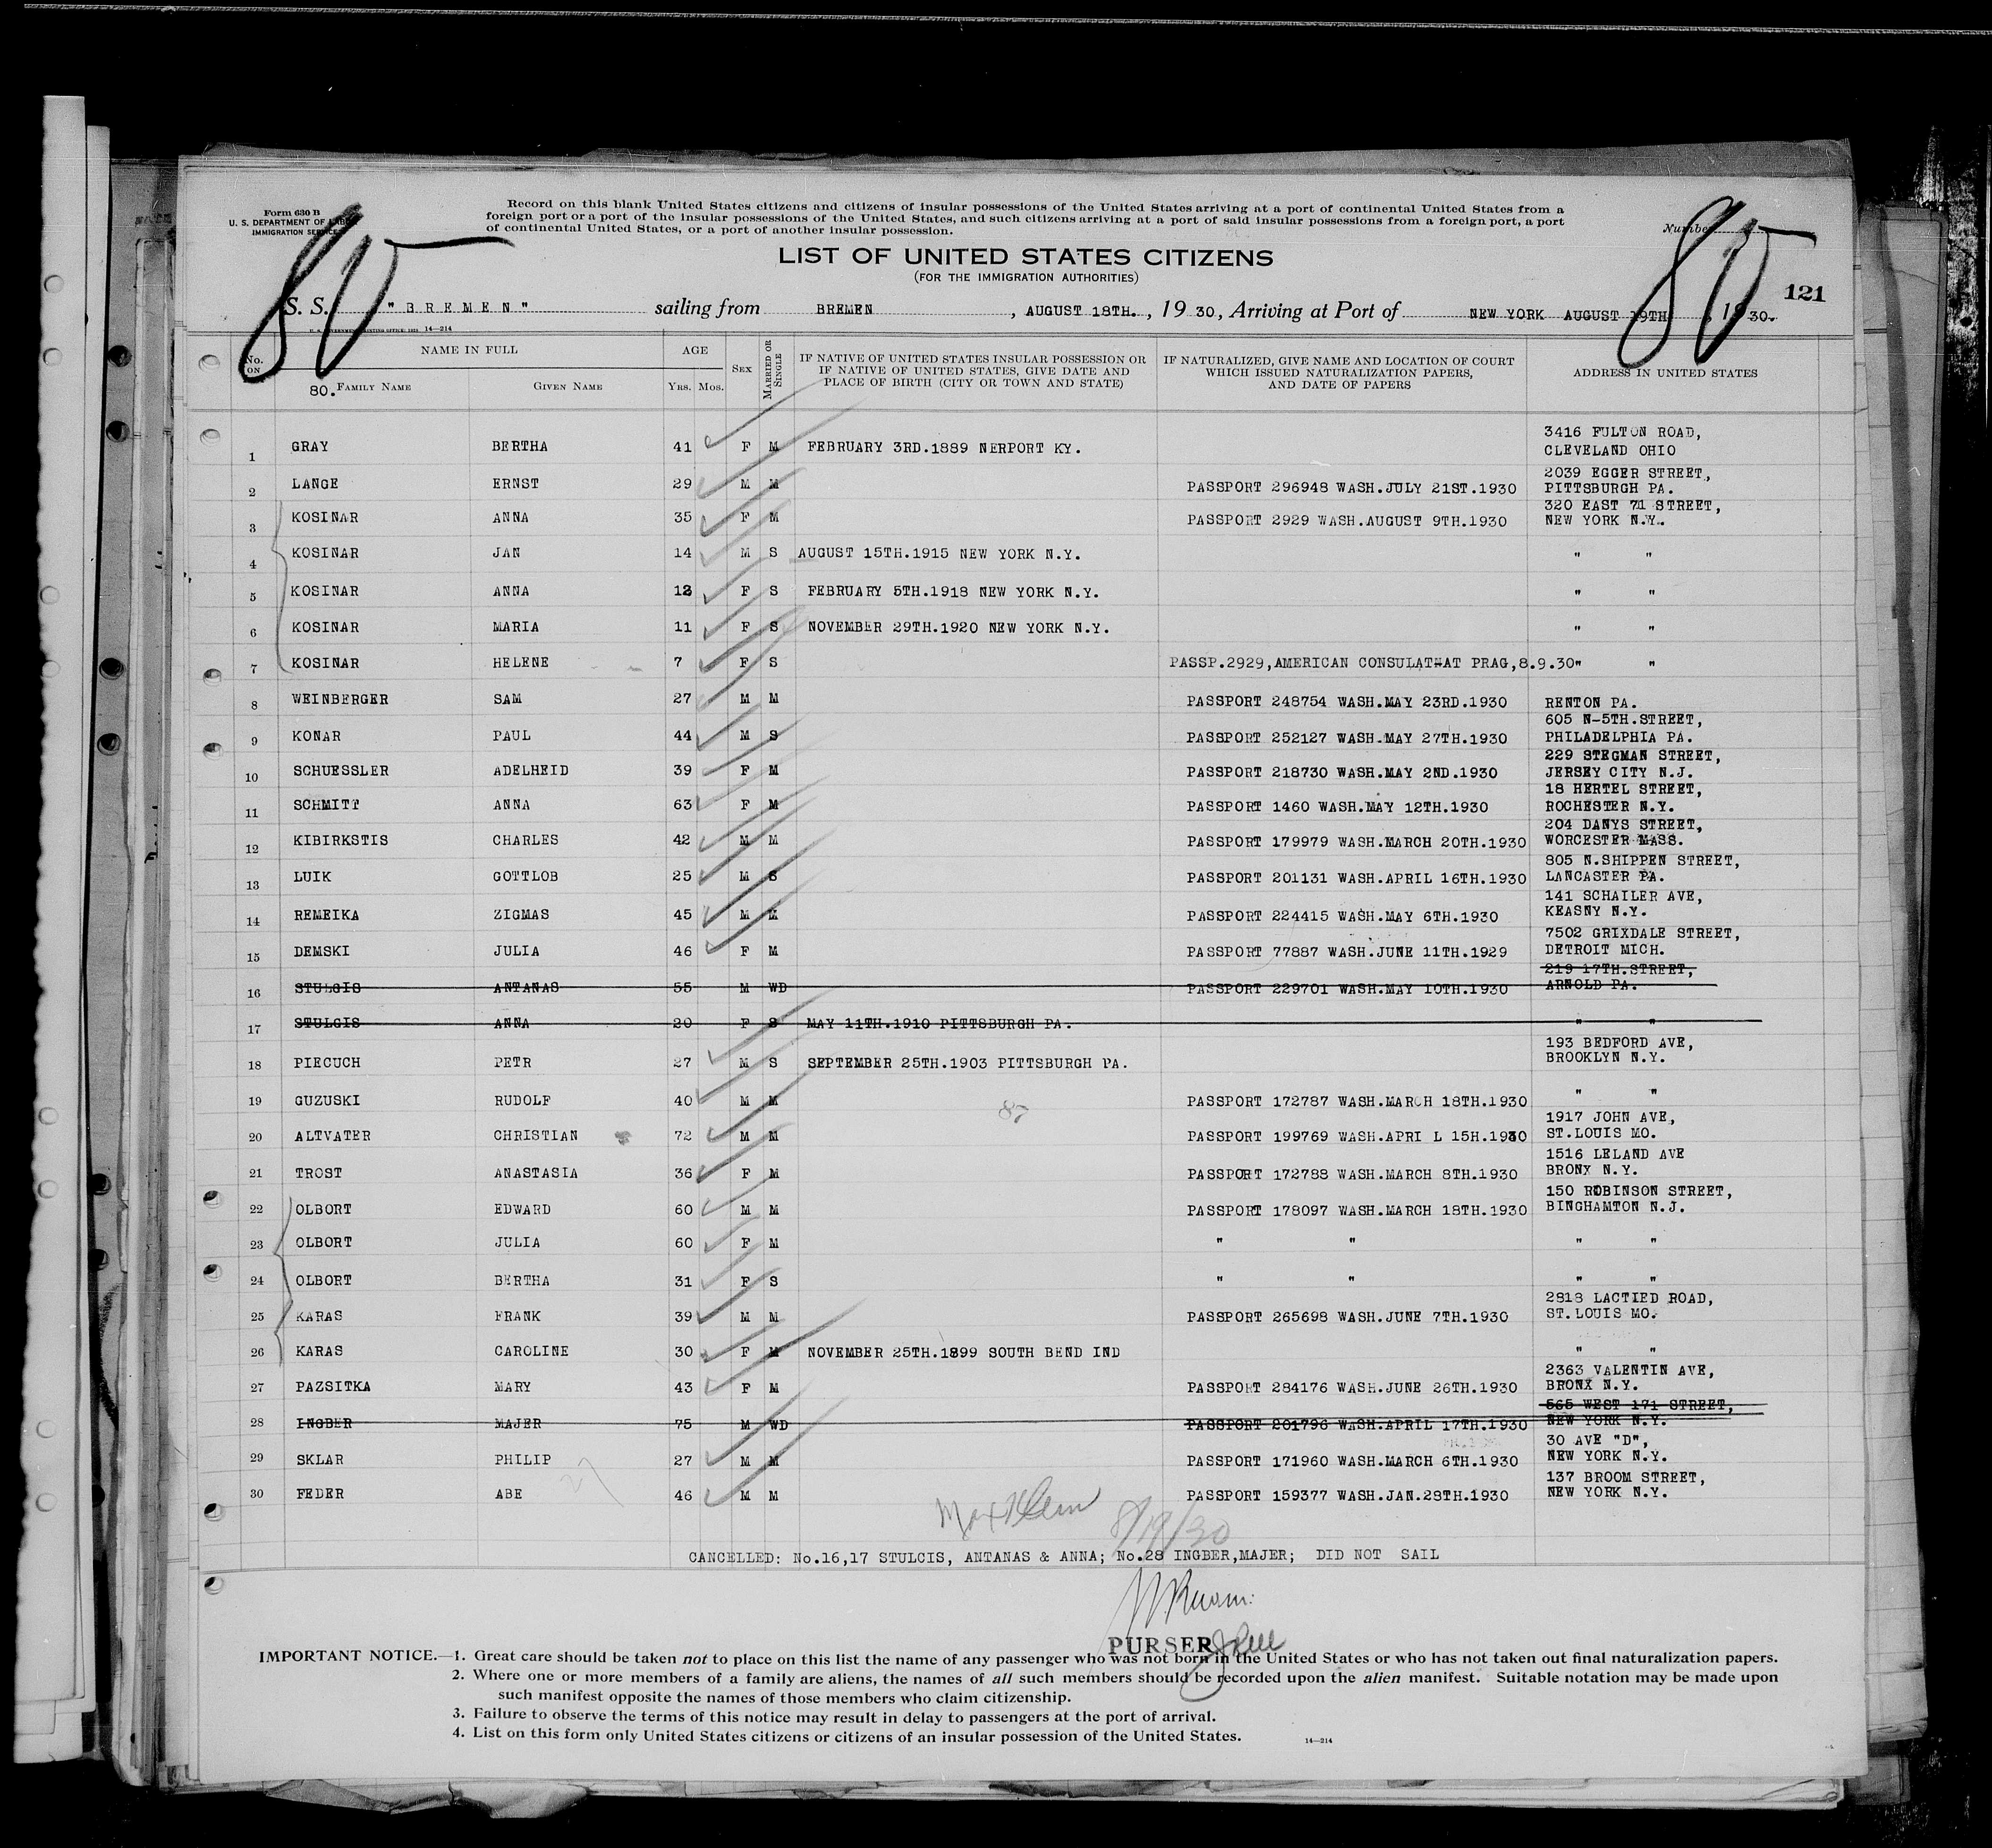 Form 630 B
U. S. DEPARTMENT OF LABOR
IMMIGRATION SERVICE
Record on this blank United States citizens and citizens of insular possessions of the United States arriving at a port of continental United States from a
foreign port or a port of the insular possessions of the United States, and such citizens arriving at a port of said insular possessions from a foreign port, a port
of continental United States, or a port of another insular possession.
Number
80 80
121
LIST OF UNITED STATES CITIZENS
(FOR THE IMMIGRATION AUTHORITIES)
S. S. "BREMEN" sailing from BREMEN, AUGUST 18TH., 1930, Arriving at Port of NEW YORK AUGUST 19TH, 1930.
U. S. GOVERNMENT PRINTING OFFICE: 14—214
No. ON NAME IN FULL AGE SEX MARRIED OR SINGLE IF NATIVE OF UNITED STATES INSULAR POSSESSION OR IF NATIVE OF UNITED STATES, GIVE DATE AND PLACE OF BIRTH (CITY OR TOWN AND STATE) IF NATURALIZED, GIVE NAME AND LOCATION OF COURT WHICH ISSUED NATURALIZATION PAPERS, AND DATE OF PAPERS ADDRESS IN UNITED STATES
80. FAMILY NAME GIVEN NAME YRS. MOS.
1 GRAY BERTHA 41 F M FEBRUARY 3RD.1889 NERPORT KY. 3416 FULTON ROAD, CLEVELAND OHIO
2 LANGE ERNST 29 M M PASSPORT 296948 WASH.JULY 21ST.1930 2039 EGGER STREET, PITTSBURGH PA.
3 KOSINAR ANNA 35 F M PASSPORT 2929 WASH.AUGUST 9TH.1930 320 EAST 71 STREET, NEW YORK N.Y.
4 KOSINAR JAN 14 M S AUGUST 15TH.1915 NEW YORK N.Y. " "
5 KOSINAR ANNA 12 F S FEBRUARY 5TH.1918 NEW YORK N.Y. " "
6 KOSINAR MARIA 11 F S NOVEMBER 29TH.1920 NEW YORK N.Y. " "
7 KOSINAR HELENE 7 F S PASSP.2929,AMERICAN CONSULAT-AT PRAG,8.9.30 " "
8 WEINBERGER SAM 27 M M PASSPORT 248754 WASH.MAY 23RD.1930 RENTON PA.
9 KONAR PAUL 44 M S PASSPORT 252127 WASH.MAY 27TH.1930 605 N-5TH.STREET, PHILADELPHIA PA.
10 SCHUESSLER ADELHEID 39 F M PASSPORT 218730 WASH.MAY 2ND.1930 229 STEGMAN STREET, JERSEY CITY N.J.
11 SCHMITT ANNA 63 F M PASSPORT 1460 WASH.MAY 12TH.1930 18 HERTEL STREET, ROCHESTER N.Y.
12 KIBIRKSTIS CHARLES 42 M M PASSPORT 179979 WASH.MARCH 20TH.1930 204 DANYS STREET, WORCESTER MASS.
13 LUIK GOTTLOB 25 M S PASSPORT 201131 WASH.APRIL 16TH.1930 805 N.SHIPPEN STREET, LANCASTER PA.
14 REMEIKA ZIGMAS 45 M M PASSPORT 224415 WASH.MAY 6TH.1930 141 SCHAILER AVE, KEASNY N.Y.
15 DEMSKI JULIA 46 F M PASSPORT 77887 WASH.JUNE 11TH.1929 7502 GRIXDALE STREET, DETROIT MICH.
16 STULGIS ANTANAS 55 M WD PASSPORT 229701 WASH.MAY 10TH.1930 219 17TH.STREET, ARNOLD PA.
17 STULGIS ANNA 20 F S MAY 11TH.1910 PITTSBURGH PA. " "
18 PIECUCH PETR 27 M S SEPTEMBER 25TH.1903 PITTSBURGH PA. 193 BEDFORD AVE, BROOKLYN N.Y.
19 GUZUSKI RUDOLF 40 M M PASSPORT 172787 WASH.MARCH 18TH.1930 " "
20 ALTVATER CHRISTIAN 72 M M PASSPORT 199769 WASH.APRI L 15H.1930 1917 JOHN AVE, ST.LOUIS MO.
21 TROST ANASTASIA 36 F M PASSPORT 172788 WASH.MARCH 8TH.1930 1516 LELAND AVE BRONX N.Y.
22 OLBORT EDWARD 60 M M PASSPORT 178097 WASH.MARCH 18TH.1930 150 ROBINSON STREET, BINGHAMTON N.J.
23 OLBORT JULIA 60 F M " " " "
24 OLBORT BERTHA 31 F S " " " "
25 KARAS FRANK 39 M M PASSPORT 265698 WASH.JUNE 7TH.1930 2818 LACTIED ROAD, ST.LOUIS MO.
26 KARAS CAROLINE 30 F M NOVEMBER 25TH.1899 SOUTH BEND IND " "
27 PAZSITKA MARY 43 F M PASSPORT 284176 WASH.JUNE 26TH.1930 2363 VALENTIN AVE, BRONX N.Y.
28 INGBER MAJER 75 M WD PASSPORT 201796 WASH.APRIL 17TH.1930 565 WEST 171 STREET, NEW YORK N.Y.
29 SKLAR PHILIP 27 M M PASSPORT 171960 WASH.MARCH 6TH.1930 30 AVE "D", NEW YORK N.Y.
30 FEDER ABE 46 M M PASSPORT 159377 WASH.JAN.28TH.1930 137 BROOM STREET, NEW YORK N.Y.
27
Max Klein 8/19/30
CANCELLED: No.16,17 STULCIS, ANTANAS & ANNA; No.28 INGBER,MAJER; DID NOT SAIL
PURSER
IMPORTANT NOTICE.—1. Great care should be taken not to place on this list the name of any passenger who was not born in the United States or who has not taken out final naturalization papers.
2. Where one or more members of a family are aliens, the names of all such members should be recorded upon the alien manifest. Suitable notation may be made upon
such manifest opposite the names of those members who claim citizenship.
3. Failure to observe the terms of this notice may result in delay to passengers at the port of arrival.
4. List on this form only United States citizens or citizens of an insular possession of the United States.
14—214